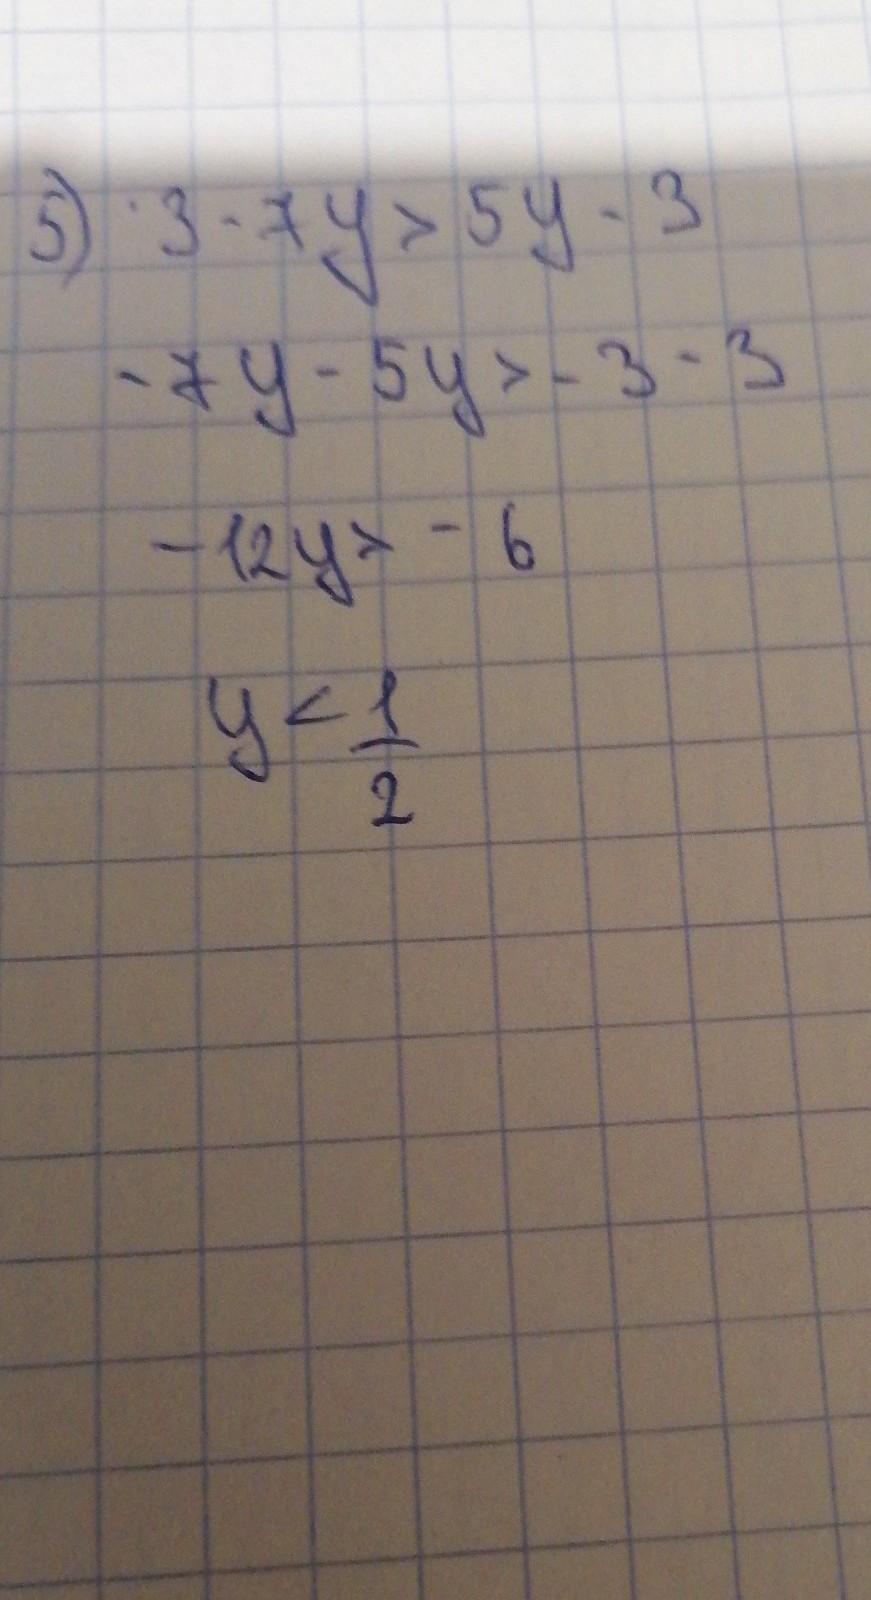 5) 3 - 7y > 5y - 3
-7y - 5y > - 3 - 3
-12y > - 6
y < 1/2